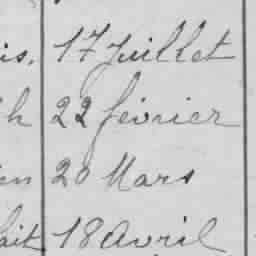 is. 17 Juillet
h 22 février
en 20 Mars
ait 18 Avril